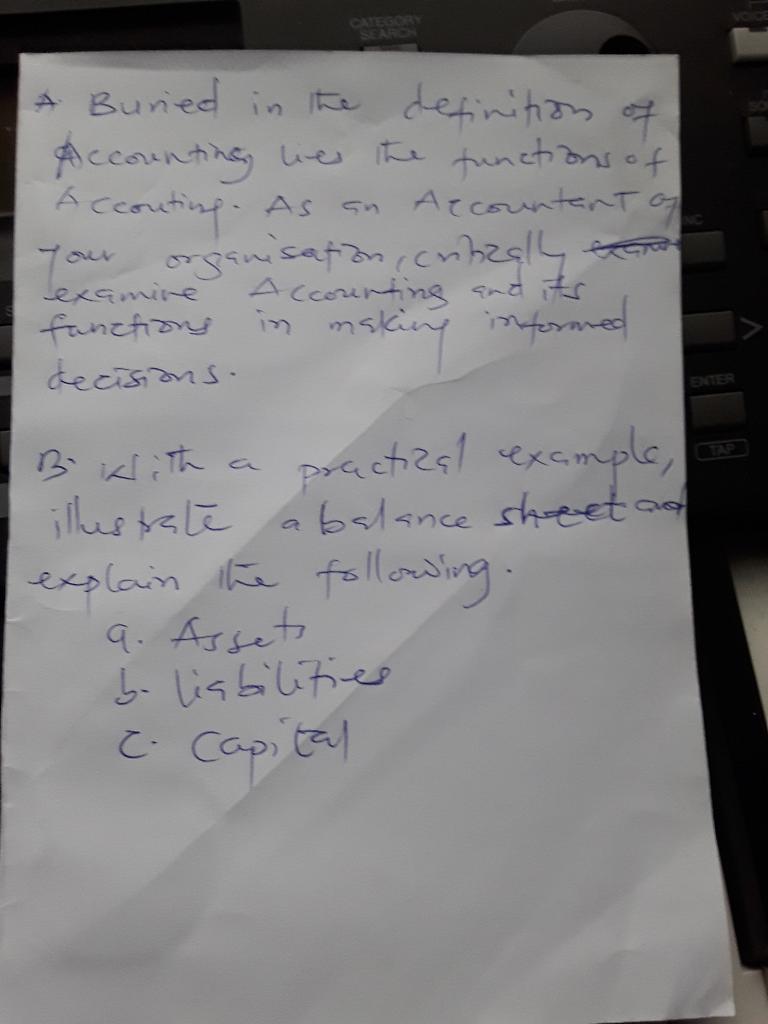 CATEGORY
SEARCH
VOICE
A. Buried in the definition of
Accounting lies the functions of
Accouting. As an Accountant of
your organisation, critically
examine Accounting and its
functions in making informed
decisions.
ENTER
TAP
B. With a practical example,
illustrate a balance sheet and
explain the following.
a. Assets
b. liabilities
c. Capital